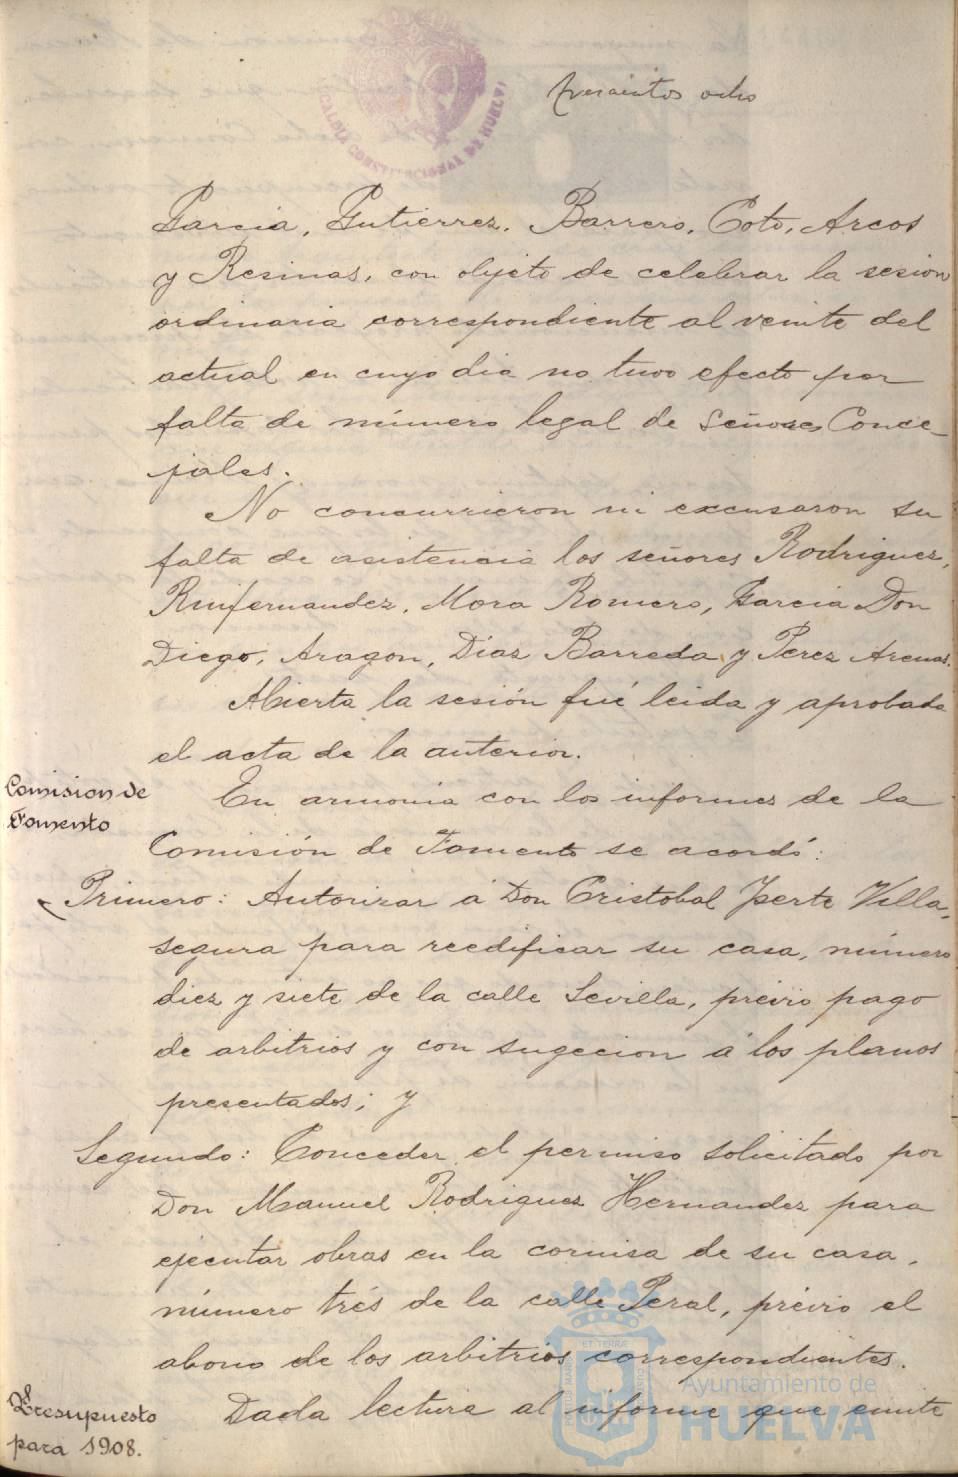 ALCALDIA CONSTITUCIONAL DE HUELVA
trescientos ocho
Garcia, Gutierrez, Barrero, Coto, Arcos
y Resinas, con objeto de celebrar la sesion
ordinaria correspondiente al veinte del
actual en cuyo dia no tuvo efecto por
falta de número legal de Señores Conce-
jales.
No concurrieron ni excusaron su
falta de asistencia los señores Rodriguez,
Ruifernandez, Mora Romero, Garcia Don
Diego, Aragon, Diaz Barreda y Perez Arenas.
Abierta la sesión fué leida y aprobada
el acta de la anterior.
Comision de
Fomento
En armonia con los informes de la
Comisión de Fomento se acordó:
Primero: Autorizar á Don Cristobal Yserte Villa-
segura para reedificar su casa, número
diez y siete de la calle Sevilla, prévio pago
de arbitrios y con sugecion á los planos
presentados; y
Segundo: Conceder el permiso solicitado por
Don Manuel Rodriguez Hernandez para
ejecutar obras en la cornisa de su casa,
número trés de la calle Peral, prévio el
abono de los arbitrios correspondientes.
Presupuesto
para 1908.
Dada lectura al informe que emite
Ayuntamiento de
HUELVA